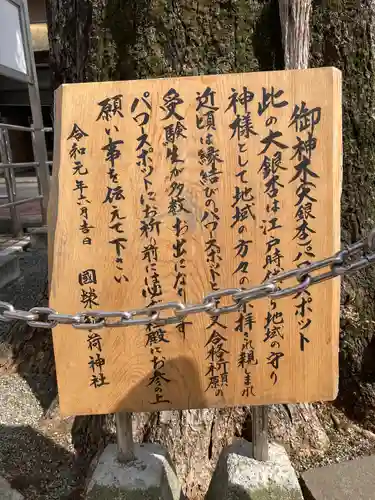 御神木(大銀杏)パワースポット
此の大銀杏は江戸時代より地域の守り
神様として地域の方々の
拝され親しまれ
近頃は縁結びのパワースポットと
又合格祈願の
受験生が多数お出になり
パワースポットにお祈り前には
社殿にお参りの上
願い事を伝えて下さい
令和元年六月吉日
國
荷神社